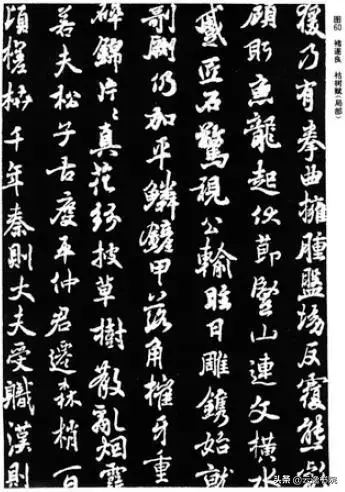 图60 褚遂良 枯树赋(局部)
乃有拳曲擁腫盤坳反覆熊彪
顧盼魚龍起伏節豎山連文橫水
蹙匠石驚視公輸眩目雕鐫始就
剞劂仍加平鱗鏟甲落角摧牙重
碎錦片々真花紛披草樹散亂烟霞
若夫松子古度平仲君遷森梢百
頃槎枿千年秦則大夫受職漢則
头条